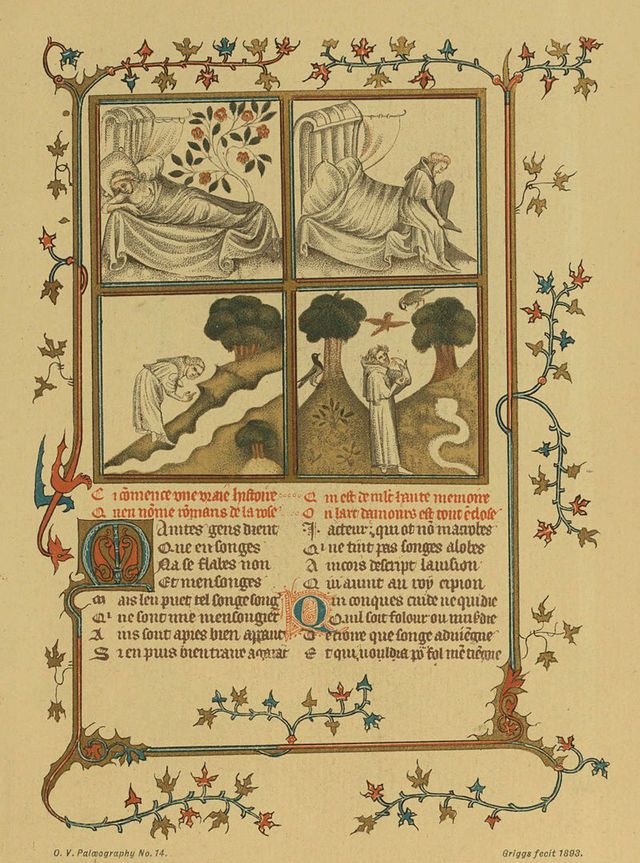 Ci cōmence vne vraie hystoire
Quen nōme rōmans de la rose
Maintes gens dient
Que en songes
Na se flabes non
Et mensonges
Mais len puet tel songe song
Qui ne sont mie mensongier
Ains sont apres bien
Si en puis bien traire a garāt
Qui est de mlt haute memoire
Ou lart damours est tout eclose
I acteur qui ot nō macrobes
Qui ne tint pas songes a lobes
Aincois descript lauision
Qui auint au roy cipion
Quiconques cuide ne qui die
Quil soit folour ou
De croire que songe aduiēgne
Et qui uouldra pō fol mē tiēgne
O. V. Palæography No. 14.
Griggs fecit 1893.